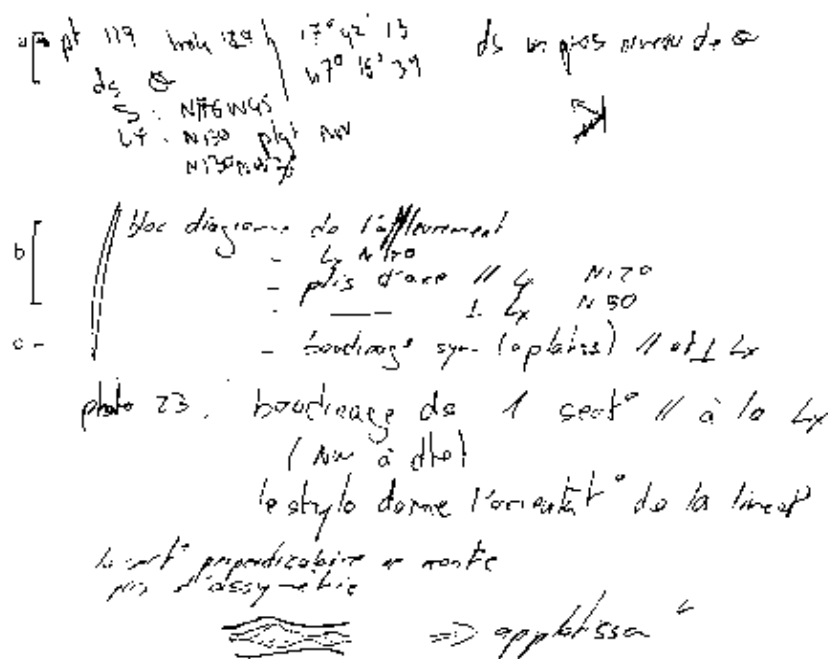 a pt 119 17° 42' 13 ds un gros niveau de Q
ds Q 47° 15' 39
S : N176W45
Lx : N130 NW
b bloc diagramme de l'affleurement
- Lx N170
- plis d'axe // Lx N170
- —— ⊥ Lx N50
c - - boudinage sym (aplatiss) // et ⊥ Lx
photo 23 : boudinage de 1 sect° // à la Lx
(NW à dte)
le stylo donne l'orientat° de la lineat°
la sect° perpendiculaire ne montre
pas d'assymétrie
=> applatissa